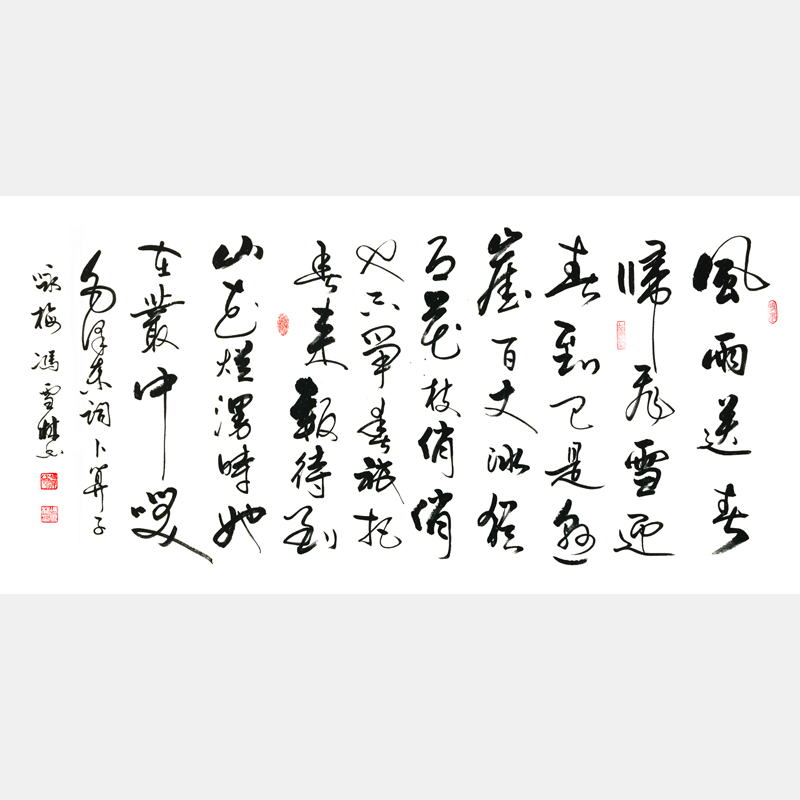 風雨送春
歸飛雪迎
春到已是懸
崖百丈冰猶
有花枝俏俏
也不爭春祇把
春來報待到
山花爛漫時她
在叢中咲
毛澤東詞卜算子
詠梅 馮雪林書